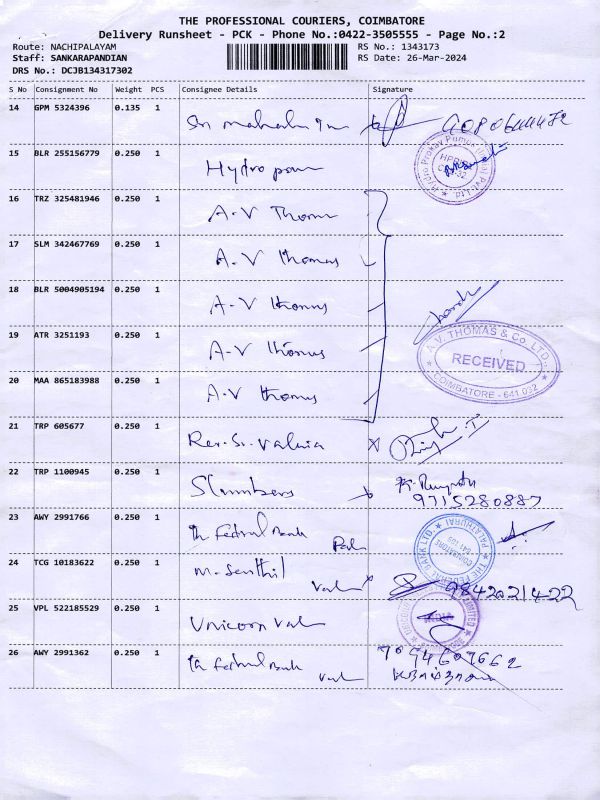 THE PROFESSIONAL COURIERS, COIMBATORE
Delivery Runsheet - PCK - Phone No.:0422-3505555 - Page No.:2
Route: NACHIPALAYAM
Staff: SANKARAPANDIAN
DRS No.: DCJB134317302
RS No.: 1343173
RS Date: 26-Mar-2024
S No Consignment No Weight PCS Consignee Details Signature
14 GPM 5324396 0.135 1
15 BLR 255156779 0.250 1 Hydro power
HPPI
16 TRZ 325481946 0.250 1 A.V Thomas
17 SLM 342467769 0.250 1 A.V thomas
18 BLR 5004905194 0.250 1 A.V thomas
19 ATR 3251193 0.250 1 A-V thomas
A.V. THOMAS & Co. LTD.
RECEIVED
COIMBATORE - 641 032
20 MAA 865183988 0.250 1 A-V thomas
21 TRP 605677 0.250 1 Rev.Sr.
22 TRP 1100945 0.250 1 Slumbers
9715280887
23 AWY 2991766 0.250 1 th Fedrul Bank
THE FEDERAL BANK LTD. PALATHURAI
COIMBATORE
641 105
24 TCG 10183622 0.250 1 M. Senthil
9842021422
25 VPL 522185529 0.250 1 Unicorn
26 AWY 2991362 0.250 1 th Fedrul Bank
7094607662